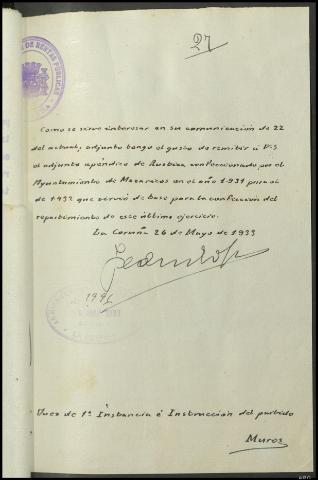 27
DE RENTAS PÚBLICAS
Como se sirve interesar en su comunicación de 22
del actual, adjunto tengo el gusto de remitir a V.S
el adjunto apéndice de Rustica confeccionado por el
Ayuntamiento de Mazaricos en el año 1.931 para el
de 1932 que sirvió de base para la confección del
repartimiento de este último ejercicio.
La Coruña 26 de Mayo de 1933
1996
Juez de 1ª Instancia é Instrucción del partido
Muros